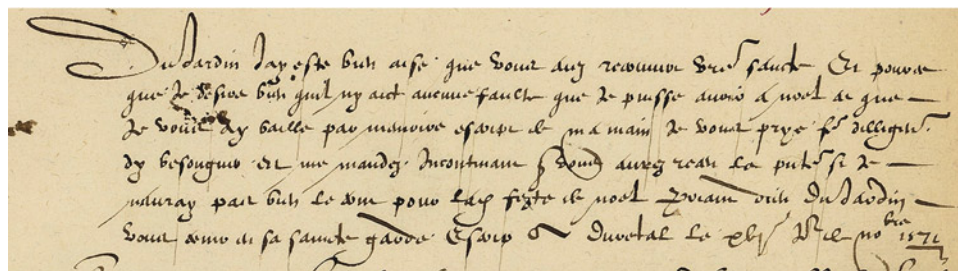 Dujardin Jay este bien aise que vous aiez recouvert vre sancte Et pource
que Je desire bien quil ny aict aucune faulte que Je puisse avoir a noel ce que
Je vous ay baille par memoire escript de ma main Je vous prye fe dilligence
dy besongner et me mandez Incontinant vous aurez receu la pnte si Je
nauray pas bien le pour lad feste de noel Priant dieu Dujardin
vous avoir en sa saincte garde Escript a Duretal le xbj Jor de novbre 1571